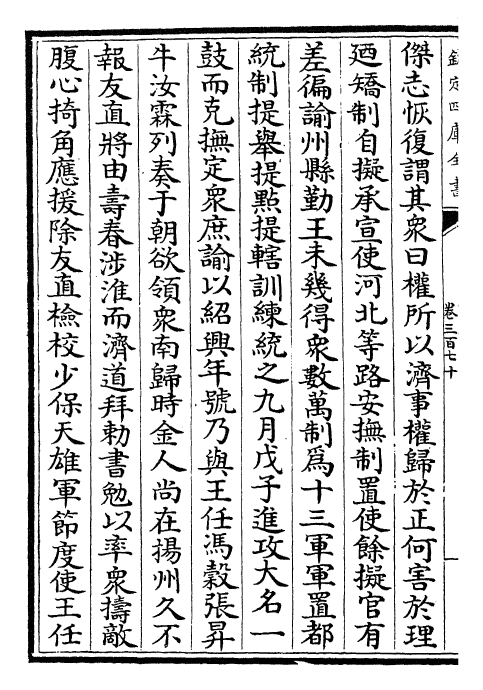 欽定四庫全書
卷三百七十
傑志恢復謂其衆曰權所以濟事權歸於正何害於理
廼矯制自擬承宣使河北等路安撫制置使餘擬官有
差徧諭州縣勤王未幾得衆數萬制爲十三軍軍置都
統制提舉提點提轄訓練統之九月戊子進攻大名一
鼓而克撫定衆庶諭以紹興年號乃與王任馮穀張昇
牛汝霖列奏于朝欲領衆南歸時金人尚在揚州久不
報友直將由壽春涉淮而濟道拜勅書勉以率衆擣敵
腹心掎角應援除友直檢校少保天雄軍節度使王任